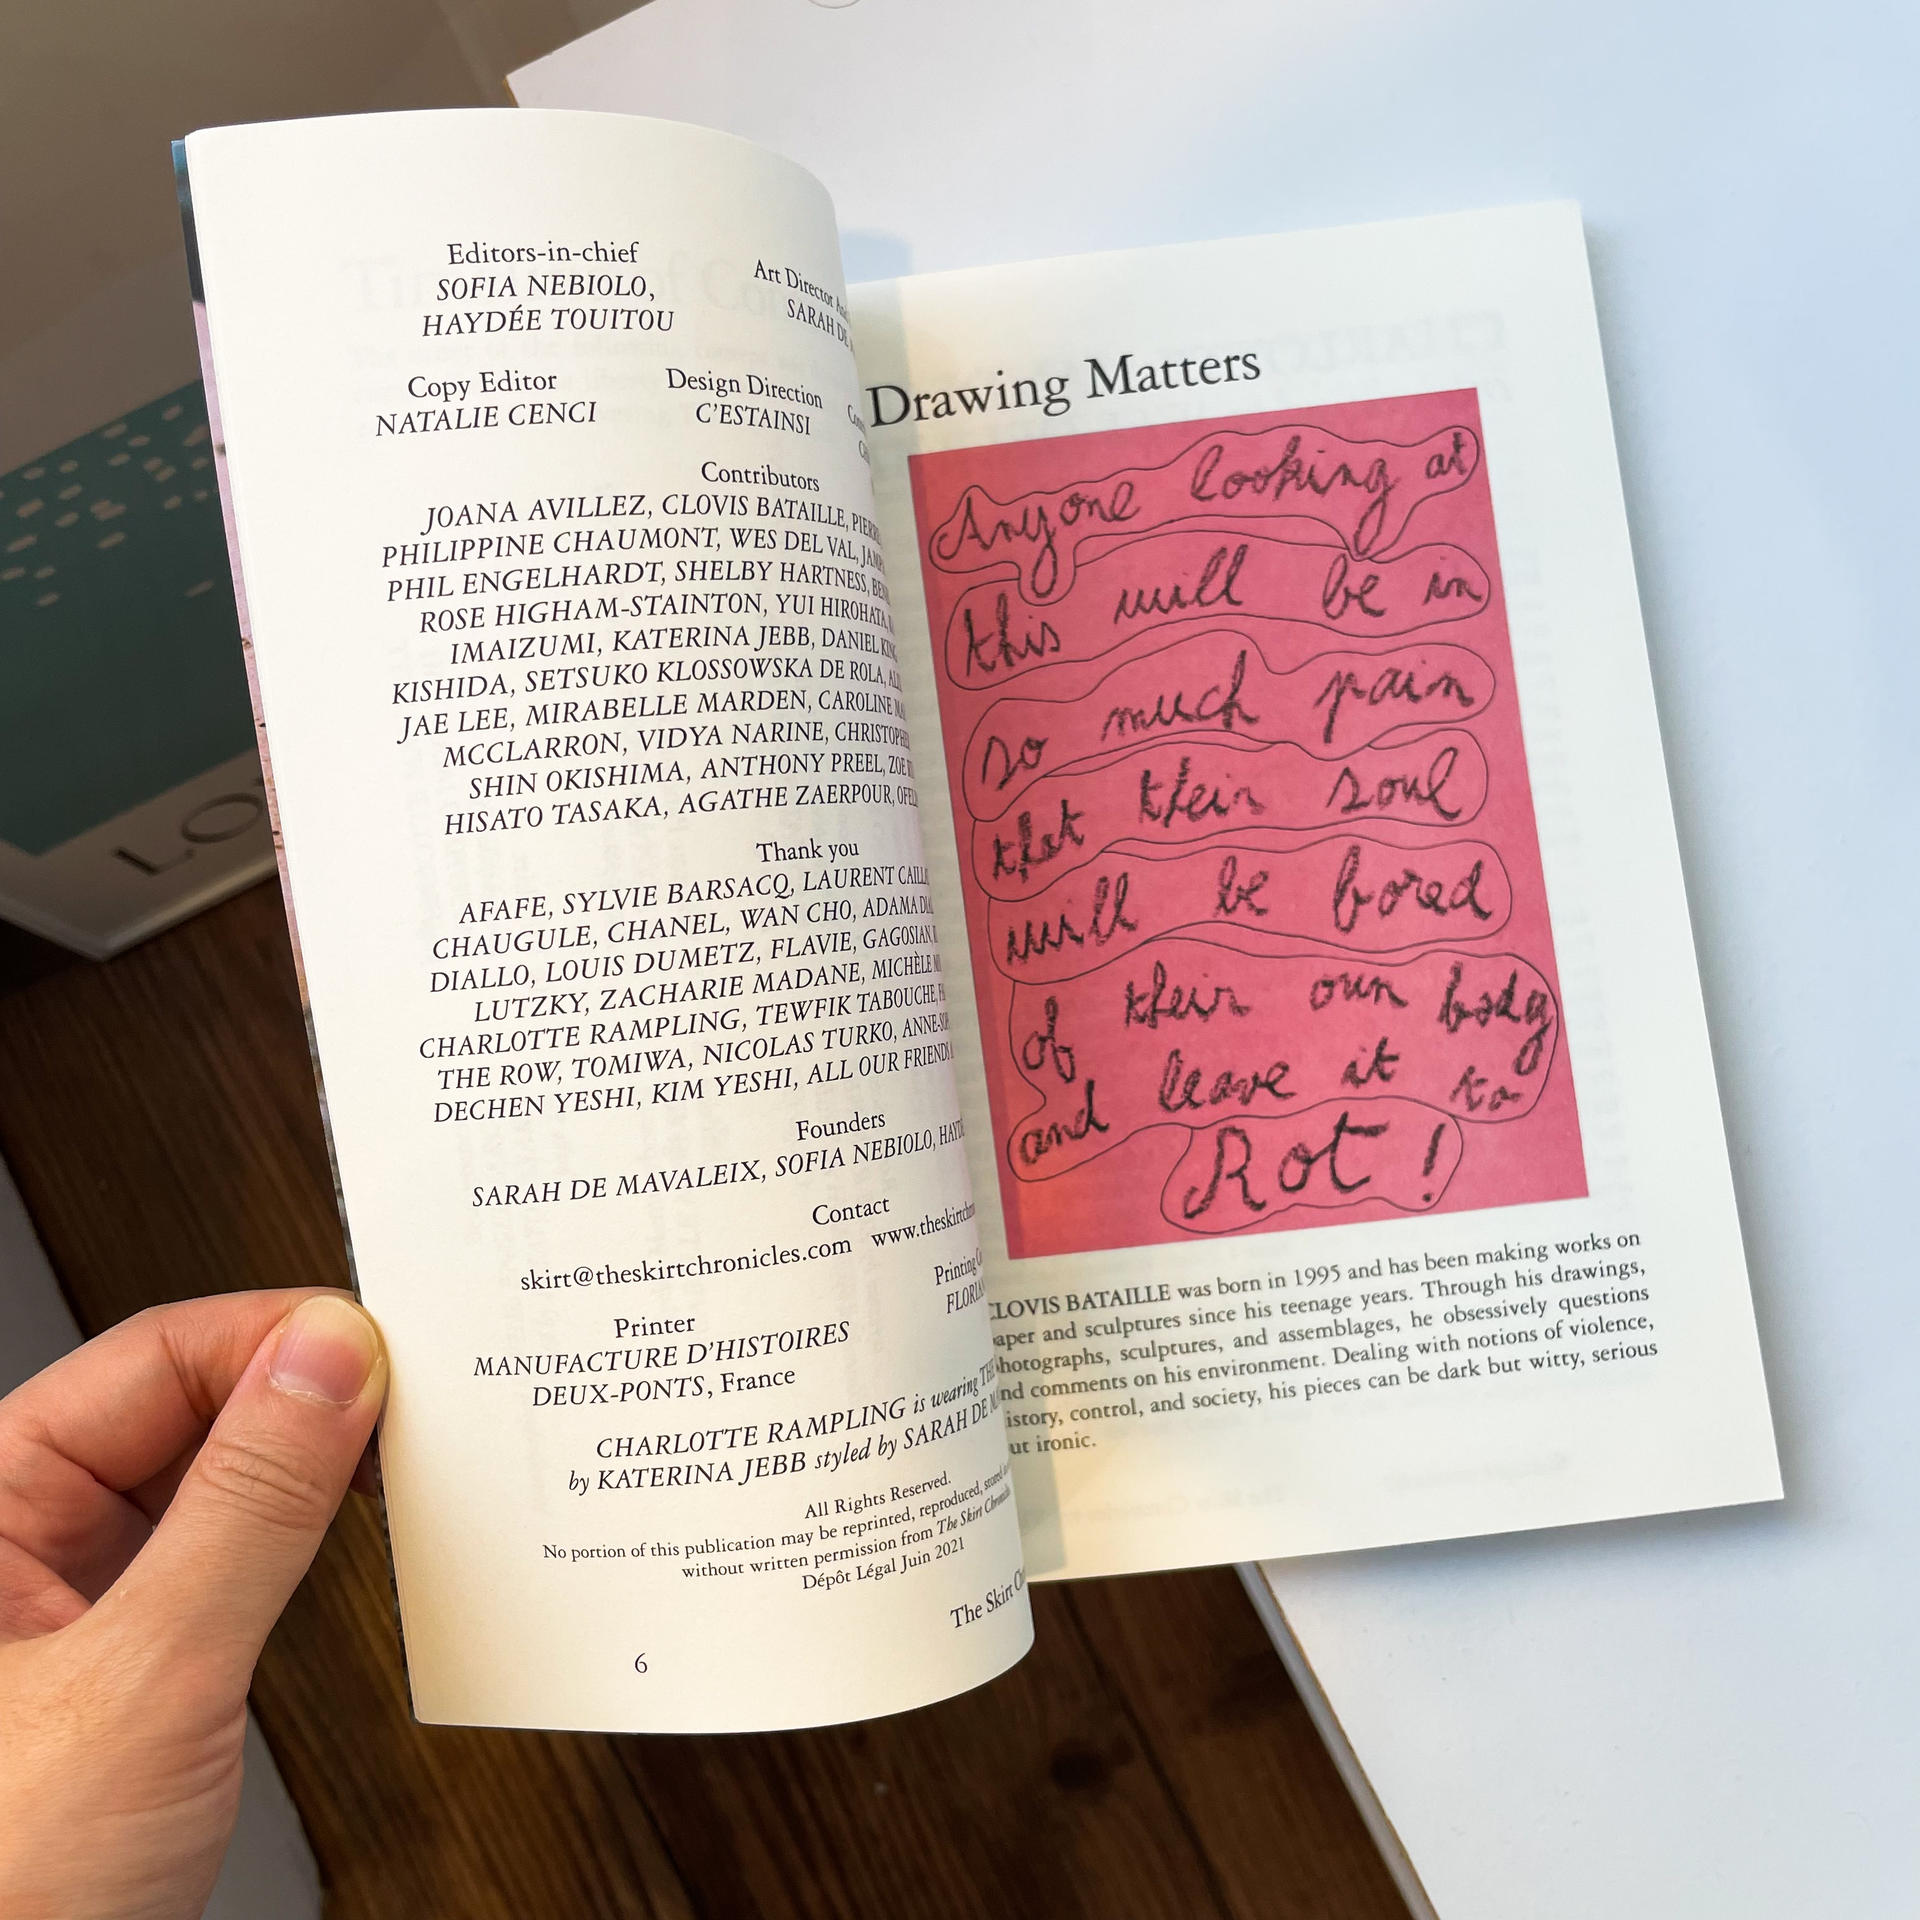 Editors-in-chief
SOFIA NEBIOLO,
HAYDÉE TOUITOU
Art Director
SARAH DE
Copy Editor
NATALIE CENCI
Design Direction
C'ESTAINSI
Contributors
JOANA AVILLEZ, CLOVIS BATAILLE,
PHILIPPINE CHAUMONT, WES DEL VAL,
PHIL ENGELHARDT, SHELBY HARTNESS,
ROSE HIGHAM-STAINTON, YUI HIROHATA,
IMAIZUMI, KATERINA JEBB, DANIEL
KISHIDA, SETSUKO KLOSSOWSKA DE ROLA,
JAE LEE, MIRABELLE MARDEN, CAROLINE
MCCLARRON, VIDYA NARINE,
SHIN OKISHIMA, ANTHONY PREEL,
HISATO TASAKA, AGATHE ZAERPOUR,
Thank you
AFAFE, SYLVIE BARSACQ, LAURENT
CHAUGULE, CHANEL, WAN CHO, ADAMA
DIALLO, LOUIS DUMETZ, FLAVIE, GAGOSIAN
LUTZKY, ZACHARIE MADANE, MICHÈLE
CHARLOTTE RAMPLING, TEWFIK TABOUCHE,
THE ROW, TOMIWA, NICOLAS TURKO,
DECHEN YESHI, KIM YESHI, ALL OUR FRIENDS
Founders
SARAH DE MAVALEIX, SOFIA NEBIOLO,
Contact
skirt@theskirtchronicles.com
Printing
Printer
MANUFACTURE D'HISTOIRES
DEUX-PONTS, France
CHARLOTTE RAMPLING is wearing
by KATERINA JEBB styled by SARAH DE
All Rights Reserved.
No portion of this publication may be reprinted, reproduced,
without written permission from The Skirt Chronicles
Dépôt Légal Juin 2021
The Skirt
6
Drawing Matters
Anyone looking at
this will be in
so much pain
that their soul
will be bored
of their own body
and leave it to
Rot !
CLOVIS BATAILLE was born in 1995 and has been making works on
and sculptures since his teenage years. Through his drawings,
sculptures, and assemblages, he obsessively questions
comments on his environment. Dealing with notions of violence,
control, and society, his pieces can be dark but witty, serious
ironic.